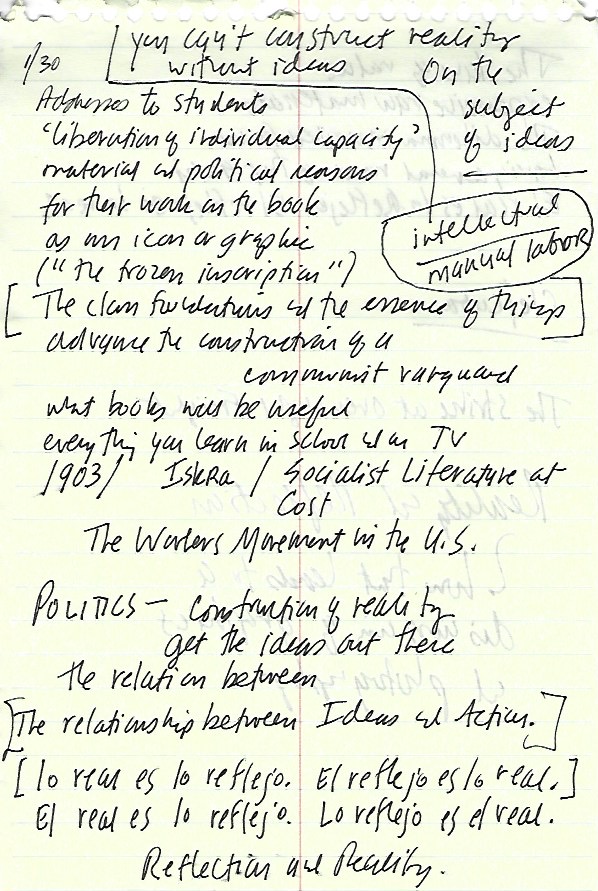 1/30
you can't construct reality
without ideas
On the
subject
of ideas
Addresses to students
"liberation of individual capacity"
material and political reasons
for their work on the book
as an icon or graphic
("the frozen inscription")
intellectual
manual labor
[The class foundations and the essence of things]
advance the construction of a
communist vanguard
what books will be useful
everything you learn in school and on TV
1903/ Iskra / Socialist Literature at
Cost
The Workers Movement in the U.S.
POLITICS — construction of reality
get the ideas out there
the relation between
[The relationship between Ideas and Action.]
[Lo real es lo reflejo. El reflejo es lo real.]
El real es lo reflejo. Lo reflejo es el real.
Reflection and Reality.